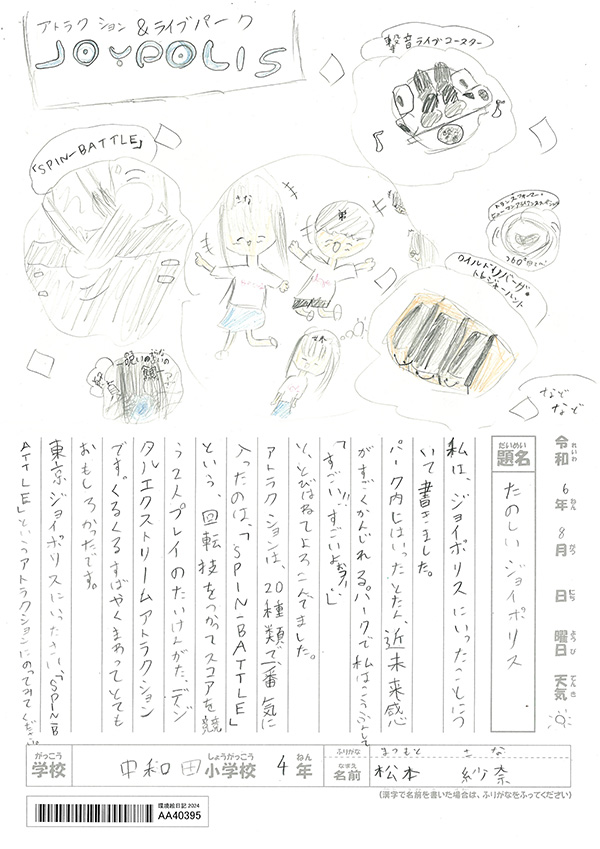 アトラクション&ライブパーク
JOYPOLIS
撃音ライブコースター
「SPIN-BATTLE」
さな
ワイルドリバー・
トレジャーハント
360°
などなど
令和6年8月 日 曜日 天気
れいわ ねん がつ にち ようび てんき
だいめい
題名
たのしいジョイポリス
私は、ジョイポリスにいったことにつ
いて書きました。
パーク内にはいったとたん、近未来感
がすごくかんじれる。パークで私はこうふんして
「すごい!!すごいよぉヲー!」
アトラクションは、20種類で一番気に
入ったのは、「SPIN-BATTLE」
という、回転技をつかってスコアを競
う2人プレイのたいけんがた、デジ
タルエクストリームアトラクション
です。くるくるすばやくまわってとても
おもしろかったです。
東京ジョイポリスにいったさい、「SPIN-B
ATTLE」というアトラクションにのってみてください。
がっこう しょうがっこう ねん
学校 中和田小学校 4年
ふりがな まつもと さな
なまえ
名前 松本 紗奈
(漢字で名前を書いた場合は、ふりがなをふってください)
環境絵日記 2024
AA40395